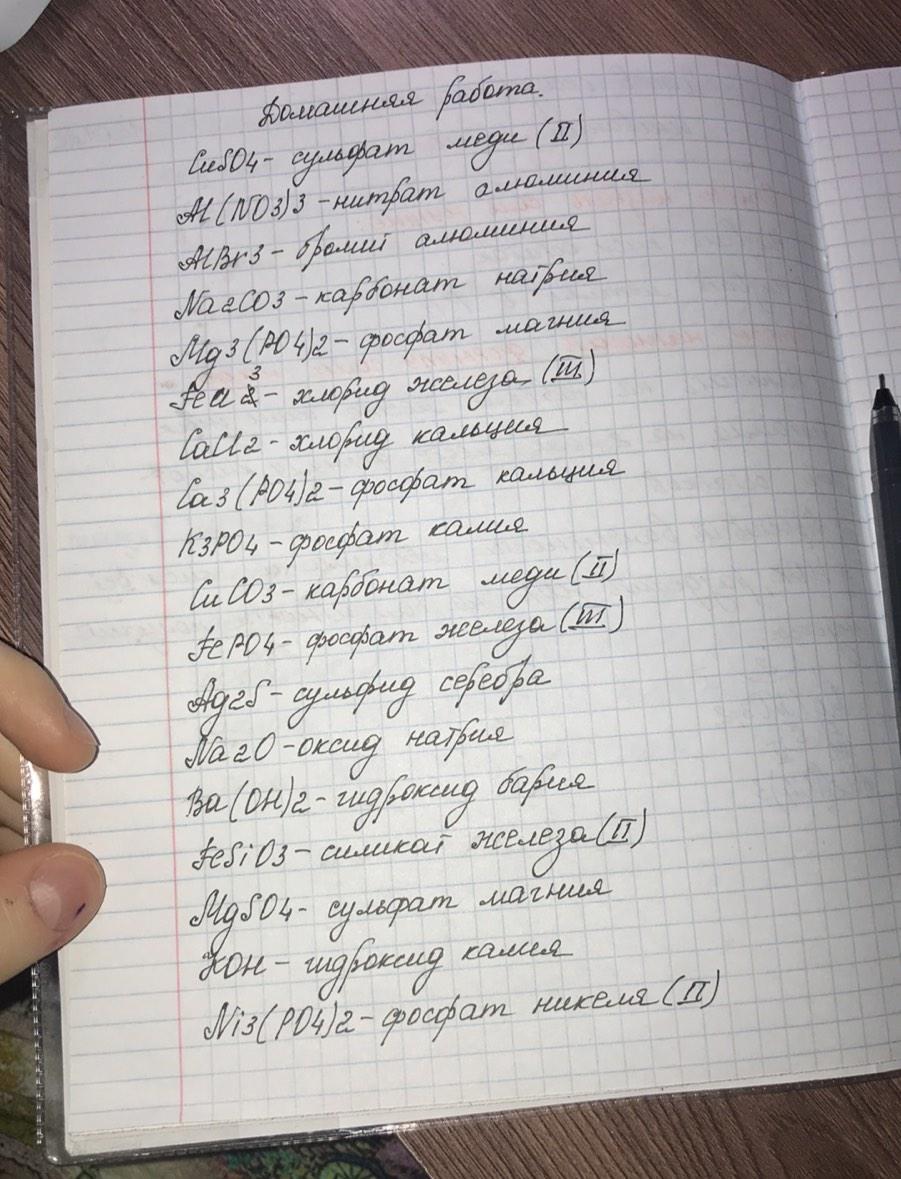 Домашняя работа.
CuSO4 - сульфат меди (II)
Al(NO3)3 - нитрат алюминия
AlBr3 - бромит алюминия
Na2CO3 - карбонат натрия
Mg3(PO4)2 - фосфат магния
FeCl3 - хлорид железа (III)
CaCl2 - хлорид кальция
Ca3(PO4)2 - фосфат кальция
K3PO4 - фосфат калия
CuCO3 - карбонат меди (II)
FePO4 - фосфат железа (III)
Ag2S - сульфид серебра
Na2O - оксид натрия
Ba(OH)2 - гидроксид бария
FeSiO3 - силикат железа (II)
MgSO4 - сульфат магния
KOH - гидроксид калия
Ni3(PO4)2 - фосфат никеля (II)